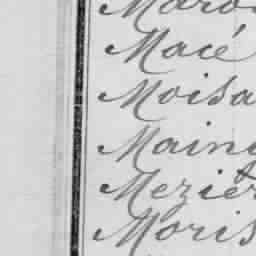 Maro
Macé
Moisa
Maing
Mezièr
Moris